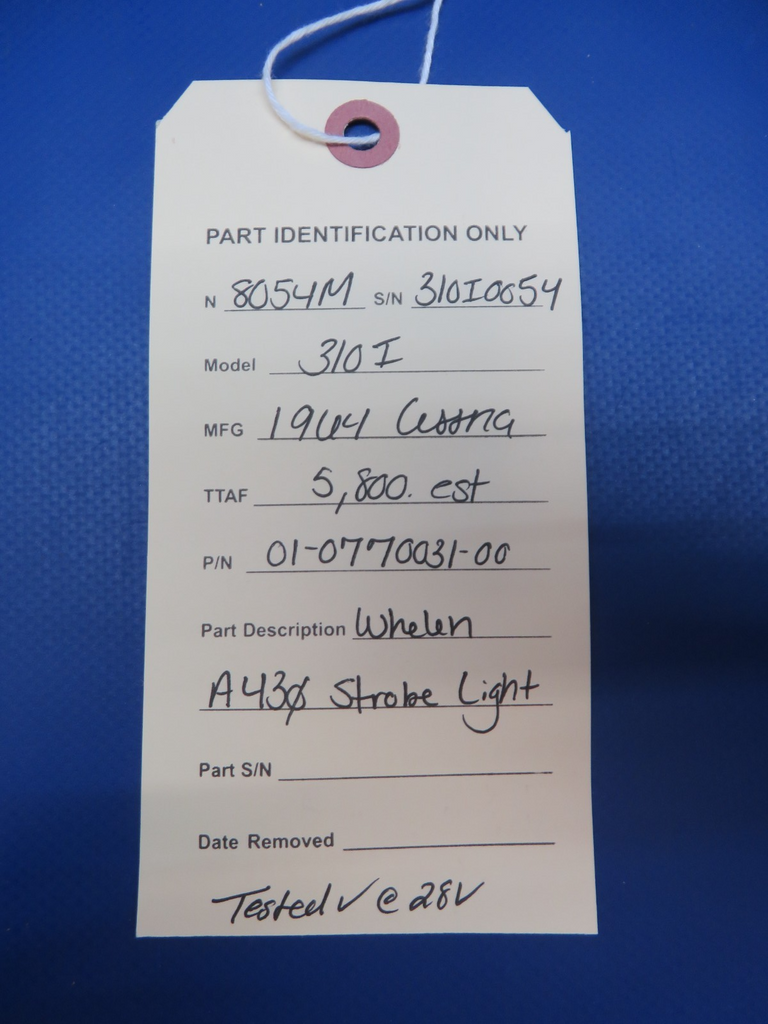 PART IDENTIFICATION ONLY
N 8054M S/N 310I0054
Model 310 I
MFG 1964 Cessna
TTAF 5,800. est
P/N 01-0770031-00
Part Description Whelen
A43Ø Strobe Light
Part S/N
Date Removed
Tested ✓ @ 28V